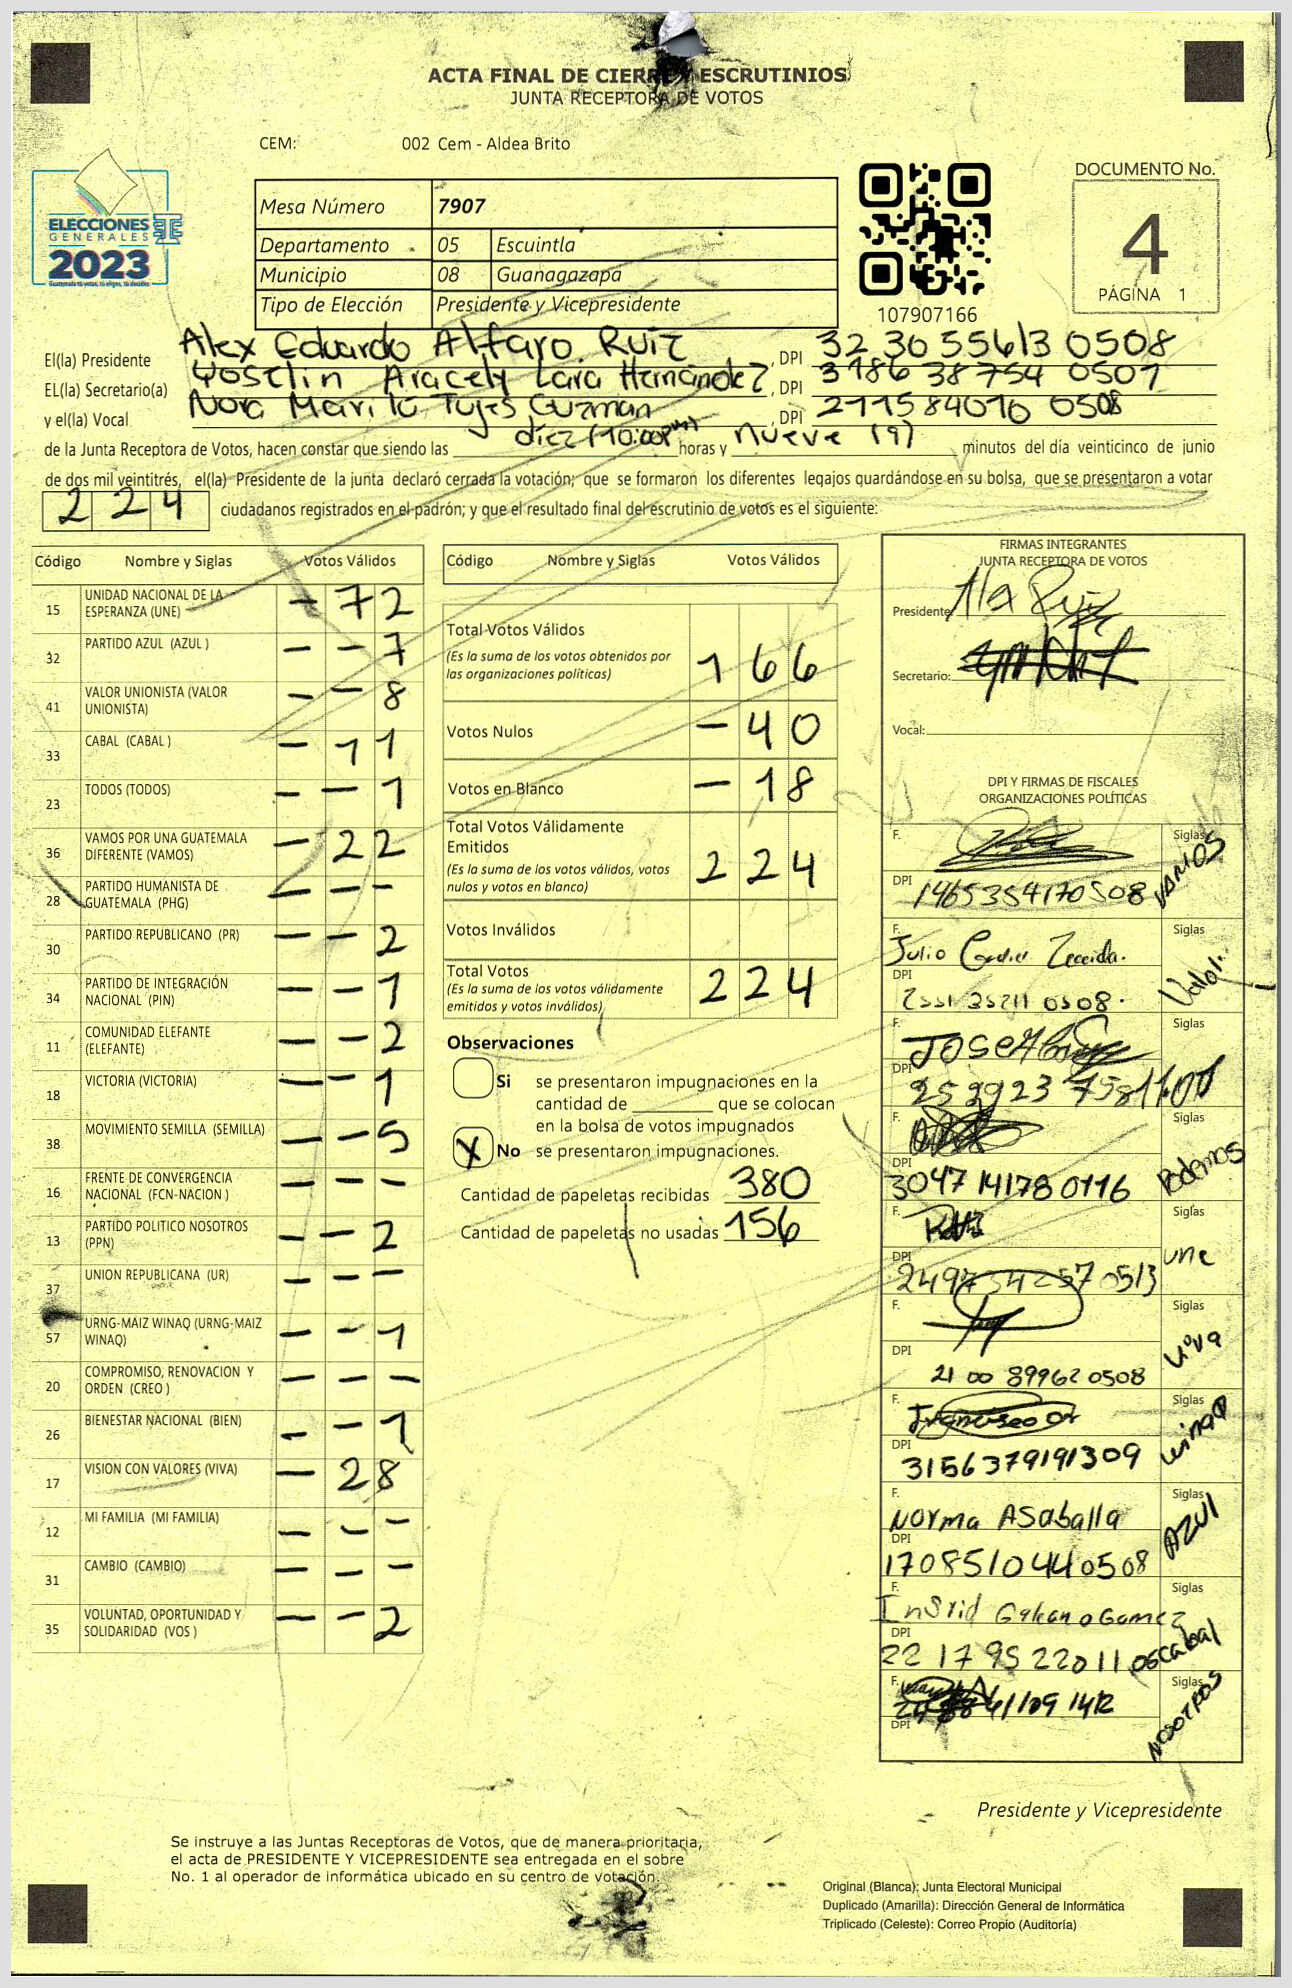 ACTA FINAL DE CIERRE Y ESCRUTINIOS
JUNTA RECEPTORA DE VOTOS
CEM: 002 Cem - Aldea Brito
ELECCIONES
GENERALES
2023
Guatemala tú votas, tú eliges, tú decides
Mesa Número 7907
Departamento 05 Escuintla
Municipio 08 Guanagazapa
Tipo de Elección Presidente y Vicepresidente
107907166
DOCUMENTO No.
4
PÁGINA 1
El(la) Presidente Alex Eduardo Alfaro Ruiz, DPI 32 30 55613 0508
EL(la) Secretario(a) Yoselin Aracely Lara Hernández, DPI 3186 38754 0501
y el(la) Vocal Nora Marilú Guzman, DPI 2771584010 0508
de la Junta Receptora de Votos, hacen constar que siendo las diez (10:00pm) horas y nueve (9) minutos del día veinticinco de junio
de dos mil veintitrés, el(la) Presidente de la junta declaró cerrada la votación; que se formaron los diferentes legajos guardándose en su bolsa, que se presentaron a votar
224 ciudadanos registrados en el padrón; y que el resultado final del escrutinio de votos es el siguiente:
Código Nombre y Siglas Votos Válidos
15 UNIDAD NACIONAL DE LA ESPERANZA (UNE) - 72
32 PARTIDO AZUL (AZUL ) - - 7
41 VALOR UNIONISTA (VALOR UNIONISTA) - - 8
33 CABAL (CABAL ) - 11
23 TODOS (TODOS) - - 1
36 VAMOS POR UNA GUATEMALA DIFERENTE (VAMOS) - 22
28 PARTIDO HUMANISTA DE GUATEMALA (PHG) - - -
30 PARTIDO REPUBLICANO (PR) - - 2
34 PARTIDO DE INTEGRACIÓN NACIONAL (PIN) - - 1
11 COMUNIDAD ELEFANTE (ELEFANTE) - - 2
18 VICTORIA (VICTORIA) - - 1
38 MOVIMIENTO SEMILLA (SEMILLA) - - 5
16 FRENTE DE CONVERGENCIA NACIONAL (FCN-NACION ) - - -
13 PARTIDO POLITICO NOSOTROS (PPN) - - 2
37 UNION REPUBLICANA (UR) - - -
57 URNG-MAIZ WINAQ (URNG-MAIZ WINAQ) - - 1
20 COMPROMISO, RENOVACION Y ORDEN (CREO ) - - -
26 BIENESTAR NACIONAL (BIEN) - - 1
17 VISION CON VALORES (VIVA) - 28
12 MI FAMILIA (MI FAMILIA) - - -
31 CAMBIO (CAMBIO) - - -
35 VOLUNTAD, OPORTUNIDAD Y SOLIDARIDAD (VOS ) - - 2
Código Nombre y Siglas Votos Válidos
Total Votos Válidos 166
(Es la suma de los votos obtenidos por
las organizaciones políticas)
Votos Nulos - 40
Votos en Blanco - 18
Total Votos Válidamente
Emitidos 224
(Es la suma de los votos válidos, votos
nulos y votos en blanco)
Votos Inválidos
Total Votos 224
(Es la suma de los votos válidamente
emitidos y votos inválidos)
Observaciones
Si se presentaron impugnaciones en la
cantidad de ________ que se colocan
en la bolsa de votos impugnados
X No se presentaron impugnaciones.
Cantidad de papeletas recibidas 380
Cantidad de papeletas no usadas 156
FIRMAS INTEGRANTES
JUNTA RECEPTORA DE VOTOS
Presidente: Alex Ruiz
Secretario:
Vocal:
DPI Y FIRMAS DE FISCALES
ORGANIZACIONES POLÍTICAS
F. Siglas VAMOS
DPI 1465354170508
F. Julio Siglas Valor
DPI 2551 35211 0508.
F. JOSE Siglas
DPI
F. Siglas Podemos
DPI 3047 14178 0116
F. Siglas une
DPI 2497542570513
F. Siglas Viva
DPI 21 00 89962 0508
F. Francisco Siglas winaq
DPI 3156379191309
F. Norma Asaballa Siglas AZUL
DPI 1708510440508
F. Ingrid Galeano Gamez Siglas cabal
DPI 22 17 95 22011 05
F. Siglas NOSOTROS
DPI
Presidente y Vicepresidente
Se instruye a las Juntas Receptoras de Votos, que de manera prioritaria,
el acta de PRESIDENTE Y VICEPRESIDENTE sea entregada en el sobre
No. 1 al operador de informática ubicado en su centro de votación.
Original (Blanca): Junta Electoral Municipal
Duplicado (Amarilla): Dirección General de Informática
Triplicado (Celeste): Correo Propio (Auditoría)